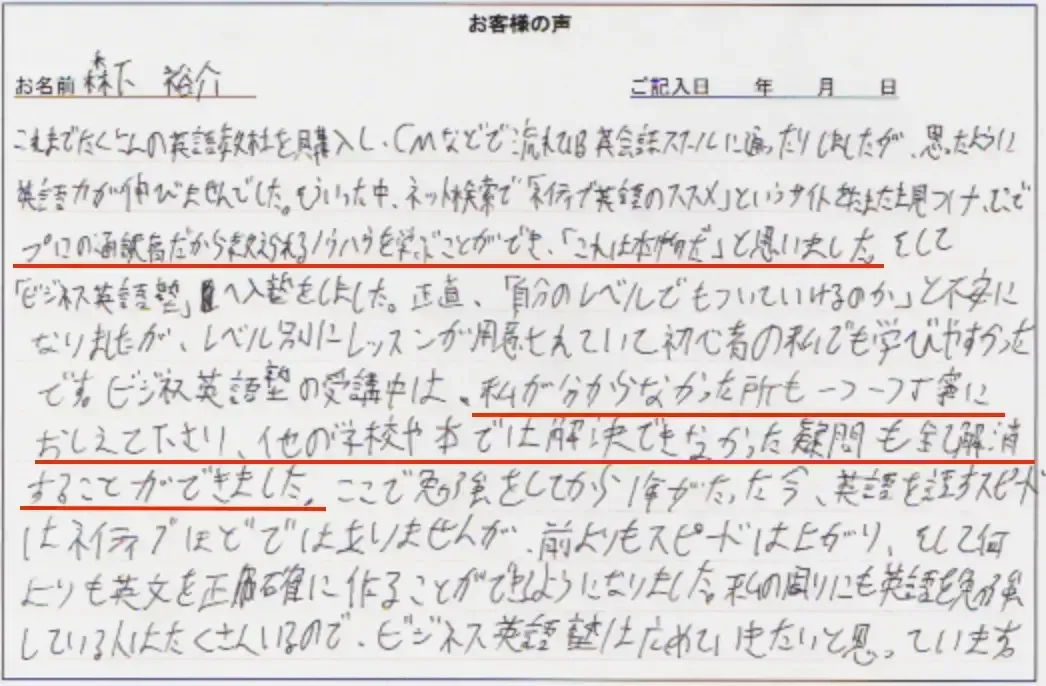 お客様の声
お名前 森下 裕介 ご記入日 年 月 日
これまでたくさんの英語教材を購入し、CMなどで流れている英会話スクールに通ったりしましたが、思ったように
英語力が伸びませんでした。そういった中、ネット検索で「ネイティブ英語のススメ」というサイトをたまたま見つけ、
プロの通訳者だから教えられるノウハウを学ぶことができ、「これは本物だ」と思いました。そして
「ビジネス英語塾」へ入塾をしました。正直、「自分のレベルでもついていけるのか」と不安に
なりましたが、レベル別にレッスンが用意されていて初心者の私でも学びやすかった
です。ビジネス英語塾の受講中は、私が分からなかった所も一つ一つ丁寧に
おしえて下さり、他の学校や本では解決できなかった疑問も全て解消
することができました。ここで勉強をしてから1年がたった今、英語を話すスピード
はネイティブほどではありませんが、前よりもスピードは上がり、そして何
よりも英文を正確に作ることができるようになりました。私の周りにも英語を勉強
している人はたくさんいるので、ビジネス英語塾は広めていきたいと思っています